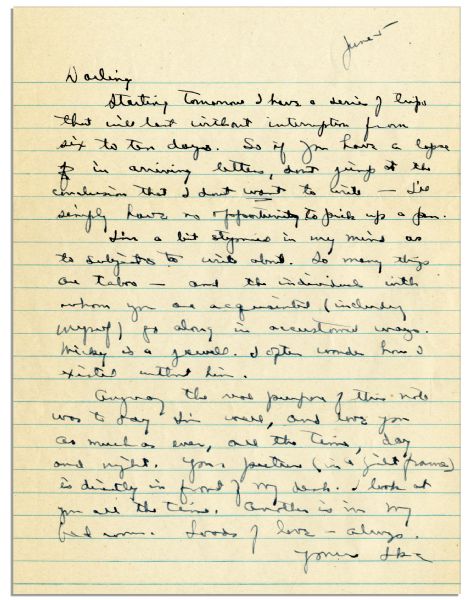 June 5
Darling
Starting tomorrow I have a series of trips
that will last without interruption from
six to ten days. So if you have a lapse
in arriving letters, don't jump at the
conclusion that I don't want to write — I'll
simply have no opportunity to pick up a pen.
I'm a bit stymied in my mind as
to subjects to write about. So many things
are taboo — and the individuals with
whom you are acquainted (including
myself) go along in accustomed ways.
Micky is a jewell. I often wonder how I
existed without him.
Anyway the real purpose of this note
was to say I'm well, and love you
as much as ever, all the time, day
and night. Your picture (in a gilt frame)
is directly in front of my desk. I look at
you all the time. Another is in my
bed room. Loads of love — always.
Yours Ike